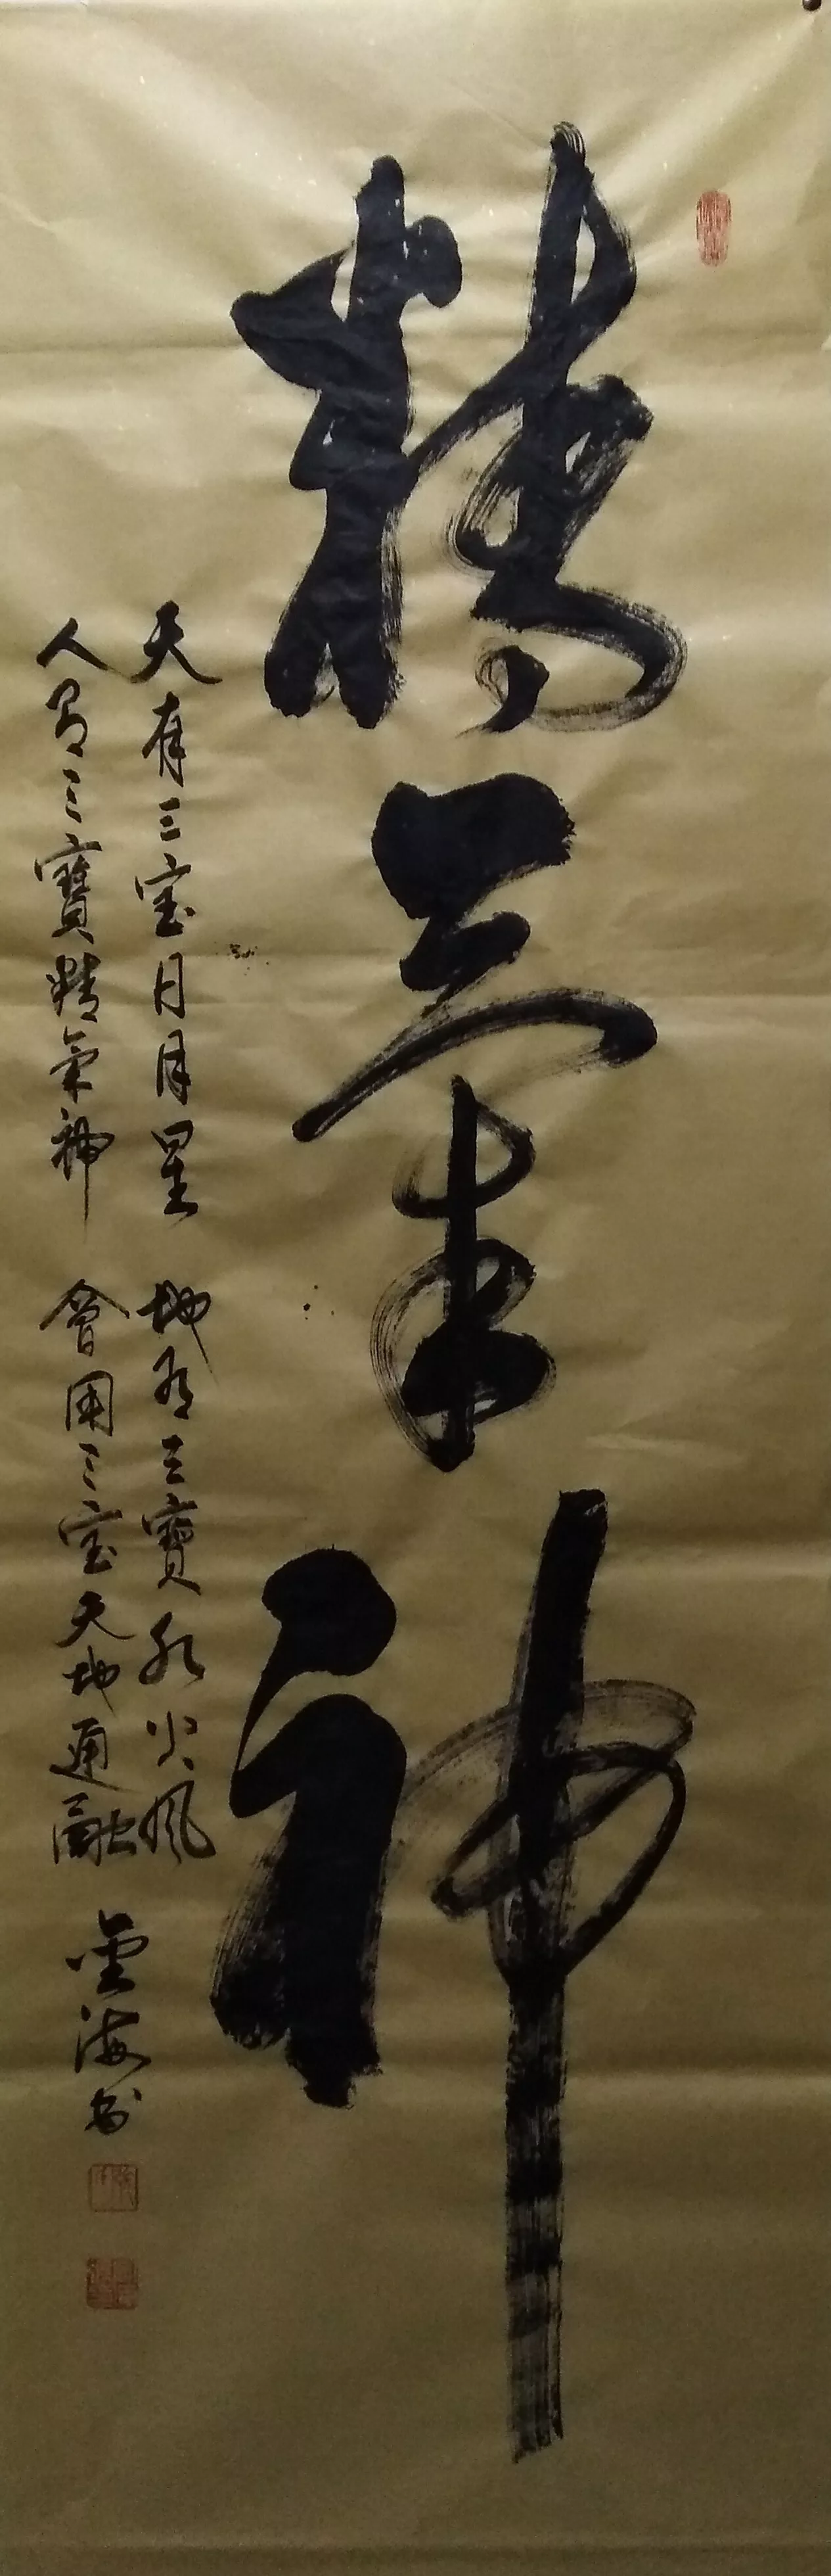 精氣神
天有三宝日月星 地有三寶水火風
人有三寶精氣神 會用三宝天地通融
海书